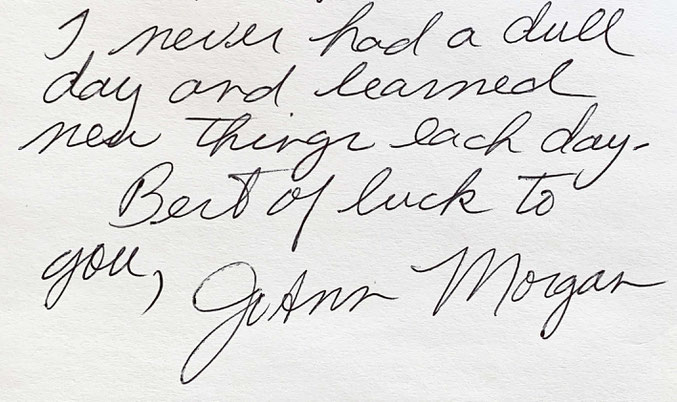 I never had a dull
day and learned
new things each day.
Best of luck to
you, JoAnn Morgan